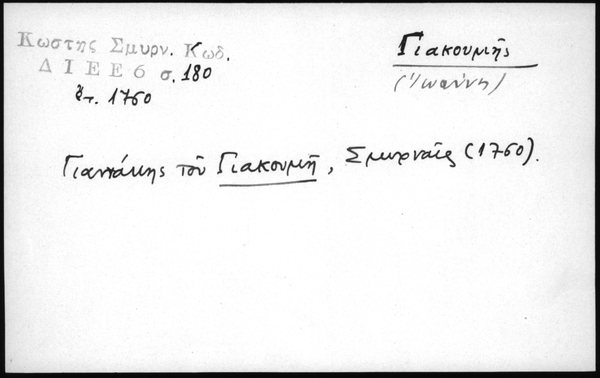 Κωστης Σμυρν. Κωδ.
Δ Ι Ε Ε 6 σ. 180
ἔτ. 1760
Γιακουμῆς
(Ἰωάννης)
Γιαννάκης τοῦ Γιακουμῆ, Σμυρναῖος (1760).